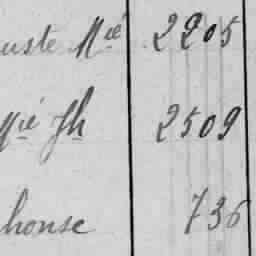 uste Mié 2205
Mié Jh 2509
honse 736